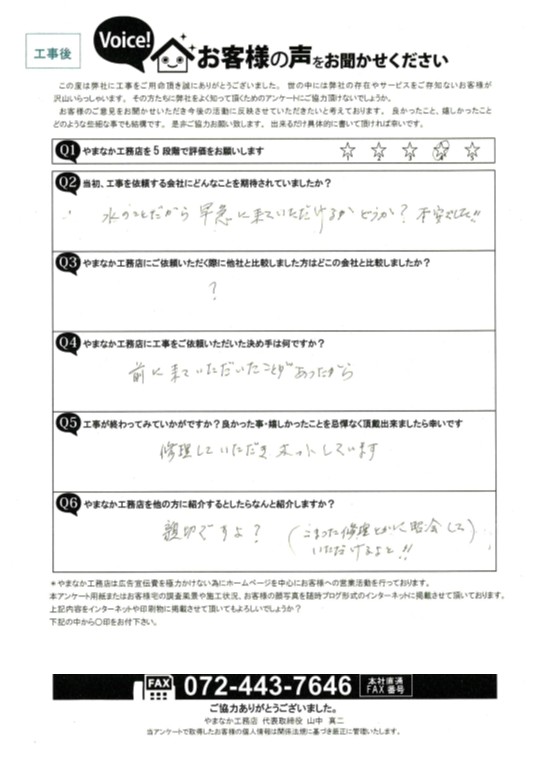 工事後
Voice!
お客様の声をお聞かせください
この度は弊社に工事をご用命頂き誠にありがとうございました。世の中には弊社の存在やサービスをご存知ないお客様が
沢山いらっしゃいます。その方たちに弊社をよく知って頂くためのアンケートにご協力頂けないでしょうか。
お客様のご意見をお聞かせいただき今後の活動に反映させていただきたいと考えております。良かったこと、嬉しかったこと
どのような些細な事でも結構です。是非ご協力お願い致します。出来るだけ具体的に書いて頂ければ幸いです。
Q1 やまなか工務店を5段階で評価をお願いします 1 2 3 4 5
Q2 当初、工事を依頼する会社にどんなことを期待されていましたか?
水のことだから早急に来ていただけるかどうか? 不安でした!!
Q3 やまなか工務店にご依頼いただく際に他社と比較しました方はどこの会社と比較しましたか?
?
Q4 やまなか工務店に工事をご依頼いただいた決め手は何ですか?
前に来ていただいたことがあったから
Q5 工事が終わってみていかがですか?良かった事・嬉しかったことを忌憚なく頂戴出来ましたら幸いです
修理していただきホットしています
Q6 やまなか工務店を他の方に紹介するとしたらなんと紹介しますか?
親切ですよ? (こまった修理とかに
いただけるよと!!
*やまなか工務店は広告宣伝費を極力かけない為にホームページを中心にお客様への営業活動を行っております。
本アンケート用紙またはお客様宅の調査風景や施工状況、お客様の顔写真を随時ブログ形式のインターネットに掲載させて頂いております。
上記内容をインターネットや印刷物に掲載させて頂いてもよろしいでしょうか?
下記の中から○印をお付下さい。
FAX 072-443-7646 本社直通
FAX番号
ご協力ありがとうございました。
やまなか工務店 代表取締役 山中 真二
当アンケートで取得したお客様の個人情報は関係法規に基づき厳正に管理いたします。